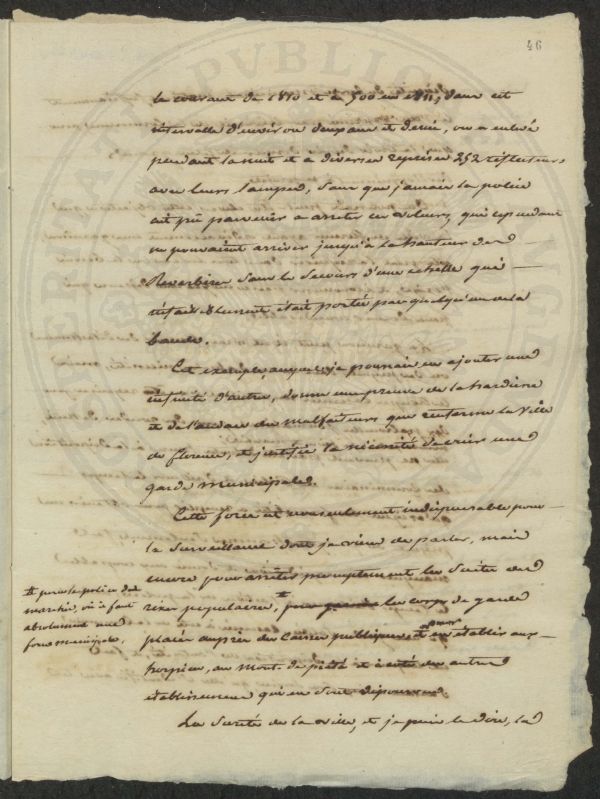 46
le courant de 1810 et à 500 en 1811, dans cet
intervalle d'environ deux ans et demi, on a enlevé
pendant la nuit et à diverses reprises 252 réflecteurs
avec leurs lampes, sans que jamais la police
ait pu parvenir a arreter ces voleurs, qui cependant
ne pouvaient arriver jusqu'à la hauteur des
Reverbères sans le secours d'une echelle qui
était portée par quelqu'un de la
bande.
Cet exemple, auquel je pourrais en ajouter une
infinité d'autres, donne une preuve de la hardiesse
et de l'audace des malfaiteurs que renferme la Ville
de florence, et justifie la nécessité de créer une
garde municipale.
Cette force est non seulement indispensable pour
la surveillance dont je viens de parler, mais
encore pour arrêter promptement les suites des
rixes populaires, les corps de garde
placés auprès des Caisses publiques et en établir aux
hospices, au Mont de piété et à coté des autres
établissemens qui en sont dépourvus.
La sureté de la Ville, et je puis le dire, la
pour la police des
marchés, où il faut
absolument une
force municipale,